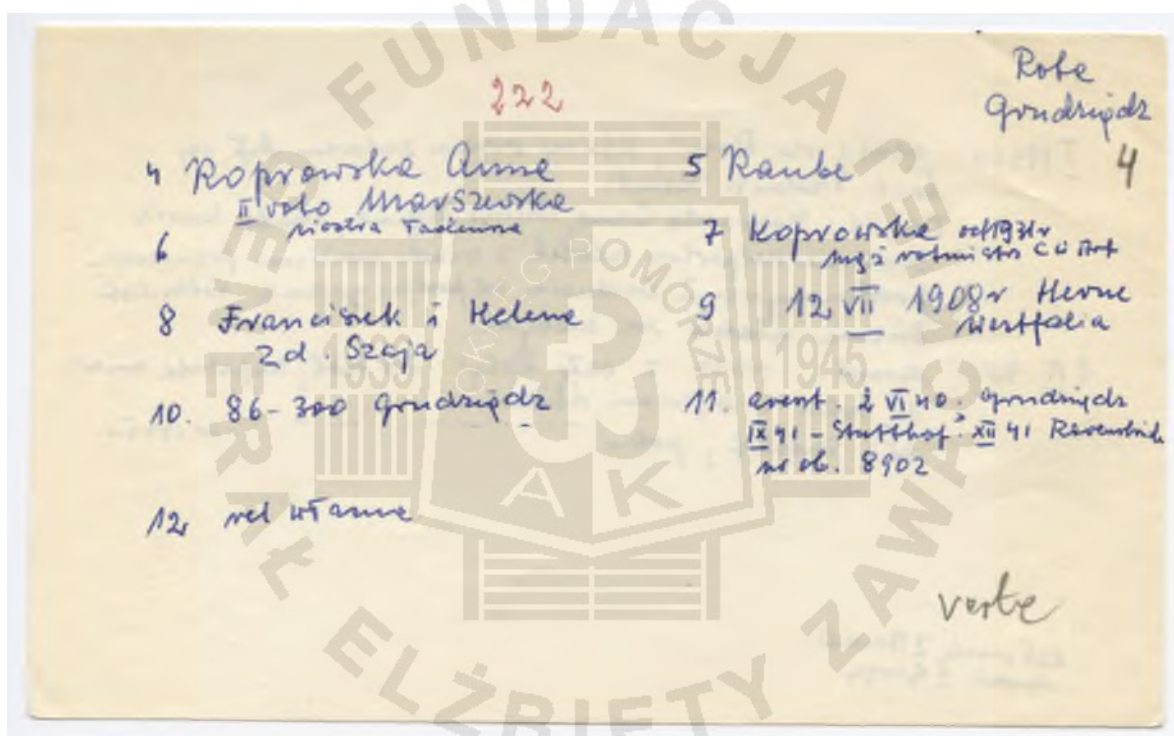 222
Rota
Grudziądz
4
4 Koprowska Anna
II voto Marszewska
siostra Tadeusza
5 Raube
6
7 Koprowska od 1931r
mąż rotmistrz CW Art
8 Franciszek i Helena
z d. Szaja
9 12 VII 1908r Herne
Westfalia
10. 86-300 Grudziądz
11. areszt. 2 VI 40. Grudziądz
IX 41 - Stutthof XII 41 Ravensbrück
nr ob. 8902
12. rel własna
verte
FUNDACJA GENERAŁ ELŻBIETY ZAWACKIEJ
OKRĘG POMORZE
1939
1945
AK